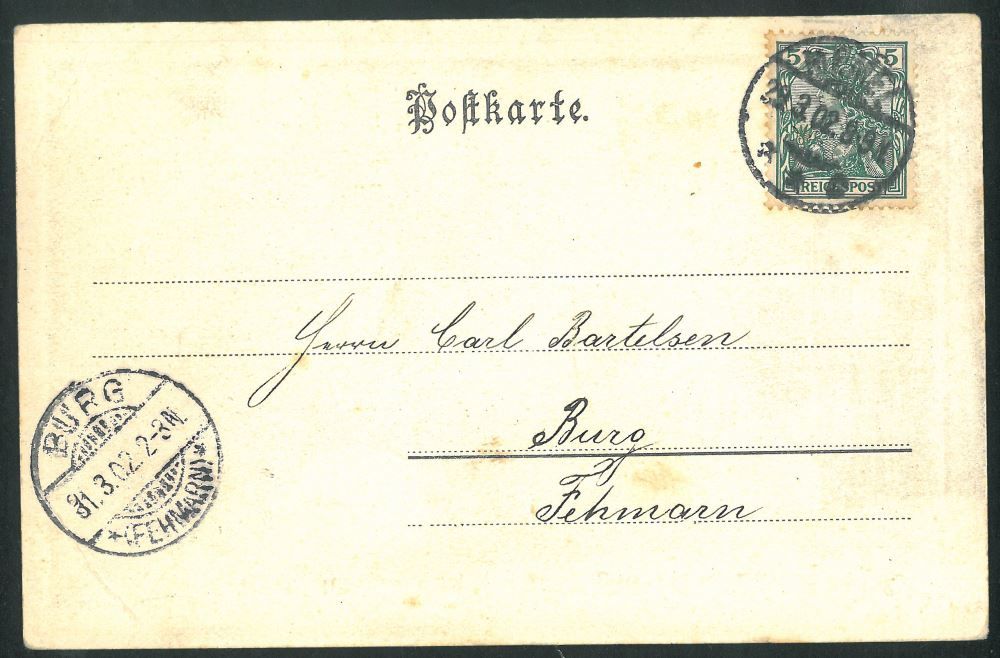 Postkarte.
5 5
3.02.
REICHSPOST
Herrn Carl Bartelsen
Burg
Fehmarn
BURG
31.3.02.2-3N
*(FEHMARN)*